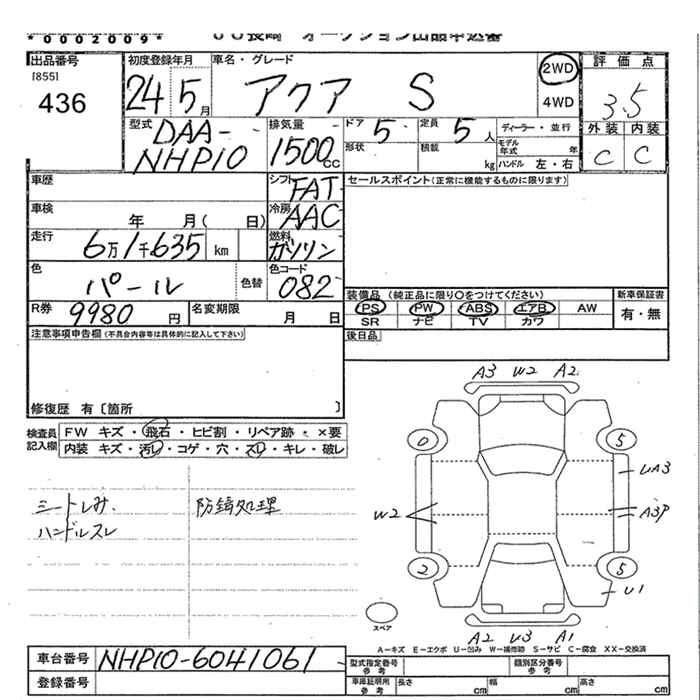 *0002009*
JU長崎 オークション出品申込書
出品番号
[855]
436
初度登録年月
24 5月
車名・グレード
アクア S
2WD
4WD
評価点
3.5
外装 内装
C C
型式
DAA-
NHP10
排気量
1500cc
ドア 5
定員 5人
ディーラー・並行
形状
積載 kg
モデル年式 年
ハンドル 左・右
車歴
シフト FAT
セールスポイント(正常に機能するものに限ります)
車検 年 月( 日)
冷房 AAC
走行 6万1千635 km
燃料 ガソリン
色 パール 色替
色コード 082
R券 9980円
名変期限 月 日
装備品 (純正品に限り○をつけてください)
新車保証書
PS PW ABS エアB AW
有・無
SR ナビ TV カワ
注意事項申告欄(不具合内容等は具体的に記入して下さい)
後日品
修復歴 有〔箇所 〕
検査員記入欄
FW キズ・飛石・ヒビ割・リペア跡・×要
内装 キズ・汚レ・コゲ・穴・スレ・キレ・破レ
シートしみ
ハンドルスレ
防錆処理
A3 W2 A2
0 5
UA3
W2
A3P
2 5
U1
スペア
A2 U3 A1
A-キズ E-エクボ U-凹み W-補修跡 S-サビ C-腐食 XX-交換済
車台番号 NHP10-6041061
登録番号
型式指定番号 参考
類別区分番号 参考
車庫証明用 参考
長さ cm 幅 cm 高さ cm